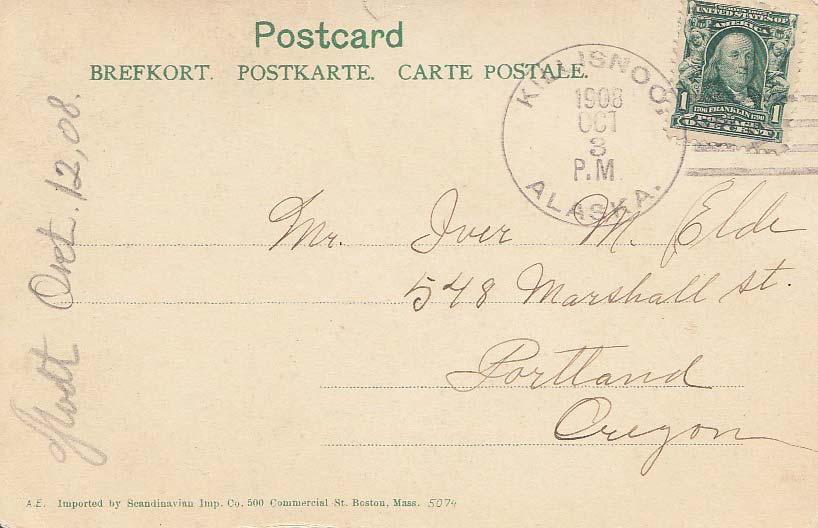 Postcard
BREFKORT. POSTKARTE. CARTE POSTALE.
KILLISNOO,
1908
OCT
3
P.M.
ALASKA.
UNITED STATES OF
AMERICA
1 1706 FRANKLIN 1790 1
POSTAGE
ONE CENT
Mr. Iver M. Elde
548 Marshall St.
Portland
Oregon
Oct. 12, 08.
A.E. Imported by Scandinavian Imp. Co. 500 Commercial St. Boston, Mass. 5074